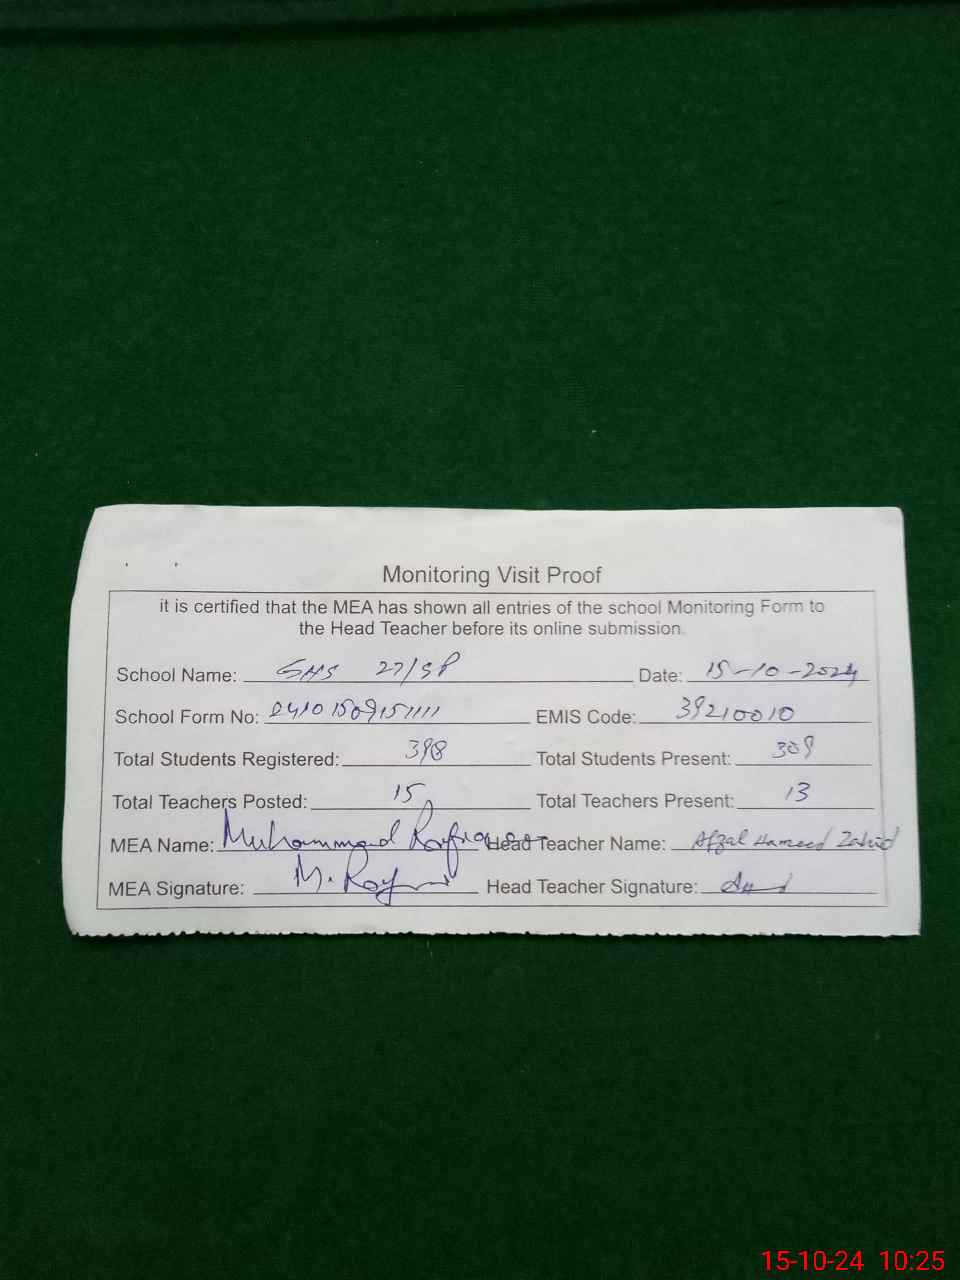 Monitoring Visit Proof
it is certified that the MEA has shown all entries of the school Monitoring Form to
the Head Teacher before its online submission.
School Name: GHS 27/SP Date: 15-10-2024
School Form No: 24101509151111 EMIS Code: 39210010
Total Students Registered: 398 Total Students Present: 309
Total Teachers Posted: 15 Total Teachers Present: 13
MEA Name: Muhammad Head Teacher Name: Afzal Hameed Zahid
MEA Signature: M. Head Teacher Signature:
15-10-24 10:25